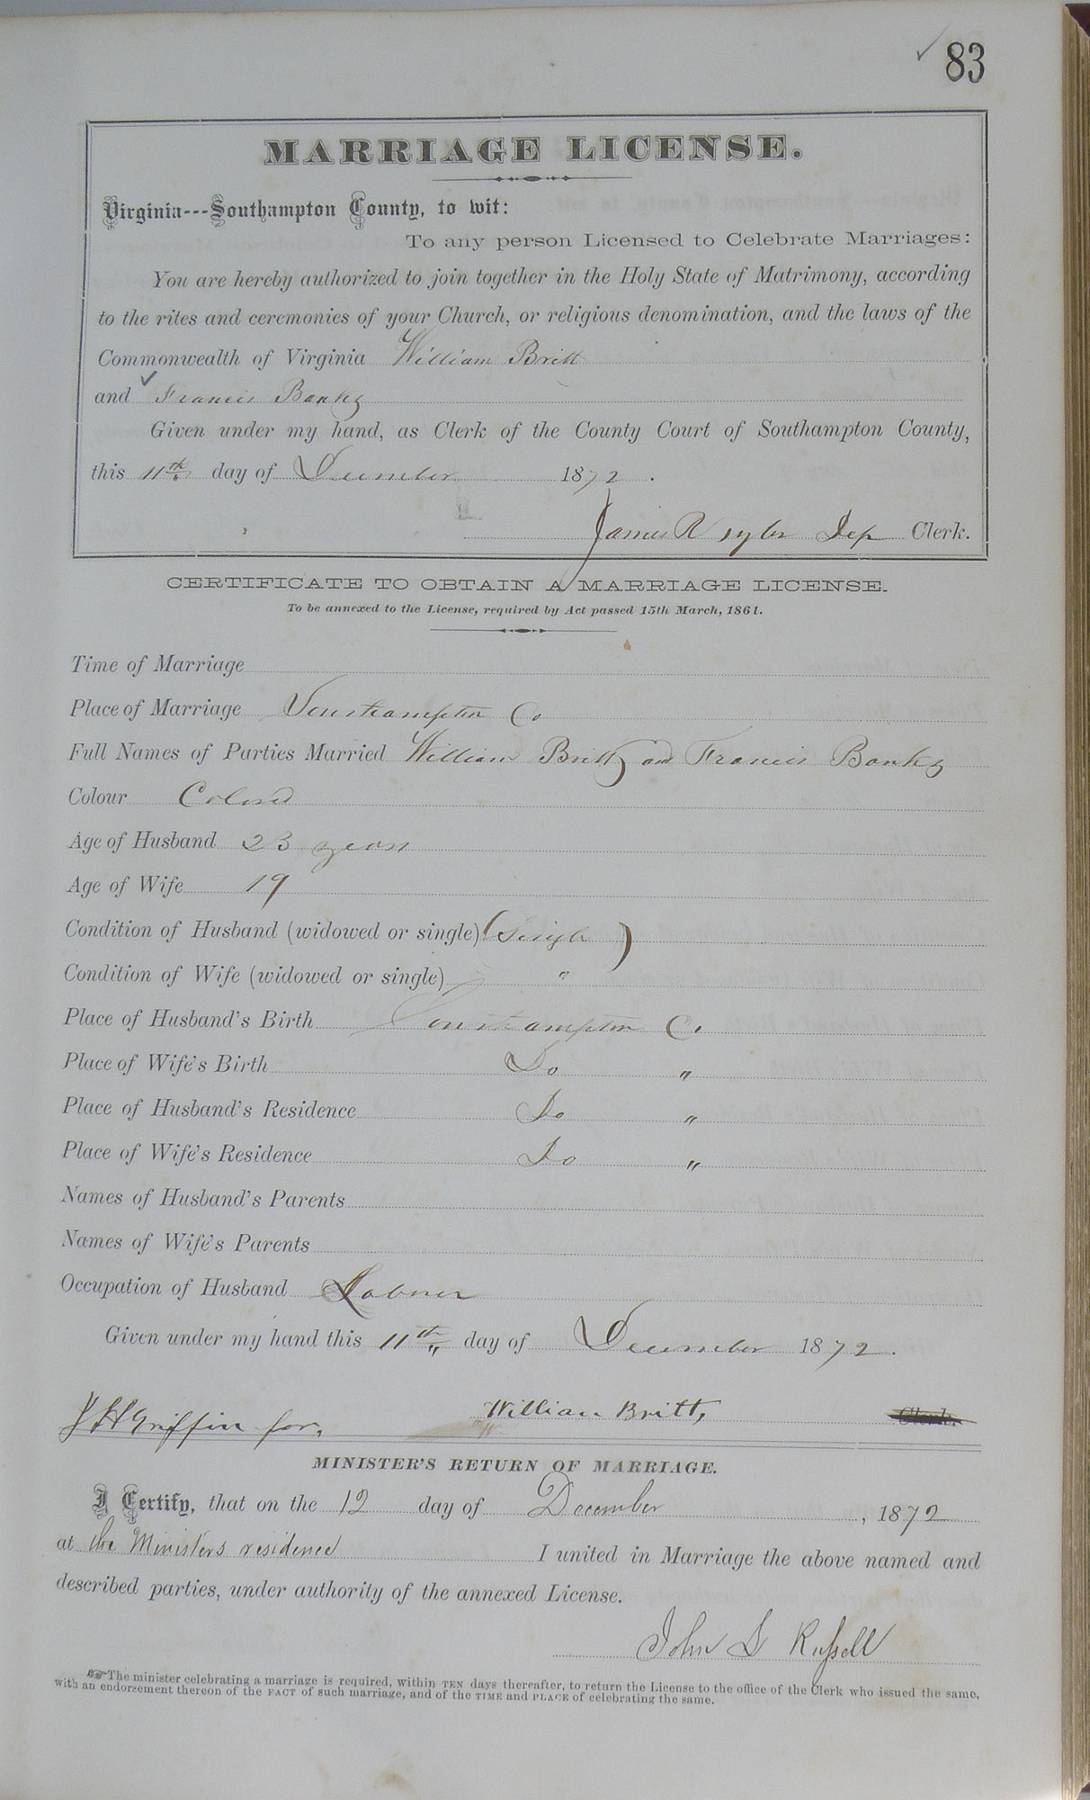 83
MARRIAGE LICENSE.
Virginia---Southampton County, to wit:
To any person Licensed to Celebrate Marriages:
You are hereby authorized to join together in the Holy State of Matrimony, according
to the rites and ceremonies of your Church, or religious denomination, and the laws of the
Commonwealth of Virginia William Britt
and Francis Banks
Given under my hand, as Clerk of the County Court of Southampton County,
this 11th day of December 1872.
James R Dep Clerk.
CERTIFICATE TO OBTAIN A MARRIAGE LICENSE.
To be annexed to the License, required by Act passed 15th March, 1861.
Time of Marriage
Place of Marriage Southampton Co
Full Names of Parties Married William Britt and Francis Banks
Colour Colored
Age of Husband 23 years
Age of Wife 19
Condition of Husband (widowed or single) (Single)
Condition of Wife (widowed or single) "
Place of Husband's Birth Southampton Co.
Place of Wife's Birth Do "
Place of Husband's Residence Do "
Place of Wife's Residence Do "
Names of Husband's Parents
Names of Wife's Parents
Occupation of Husband Laborer
Given under my hand this 11th day of December 1872.
J H Griffin for, William Britt, Clerk.
MINISTER'S RETURN OF MARRIAGE.
I Certify, that on the 12 day of December, 1872
at the Ministers residence I united in Marriage the above named and
described parties, under authority of the annexed License.
John L Russell
☞ The minister celebrating a marriage is required, within TEN days thereafter, to return the License to the office of the Clerk who issued the same,
with an endorsement thereon of the FACT of such marriage, and of the TIME and PLACE of celebrating the same.